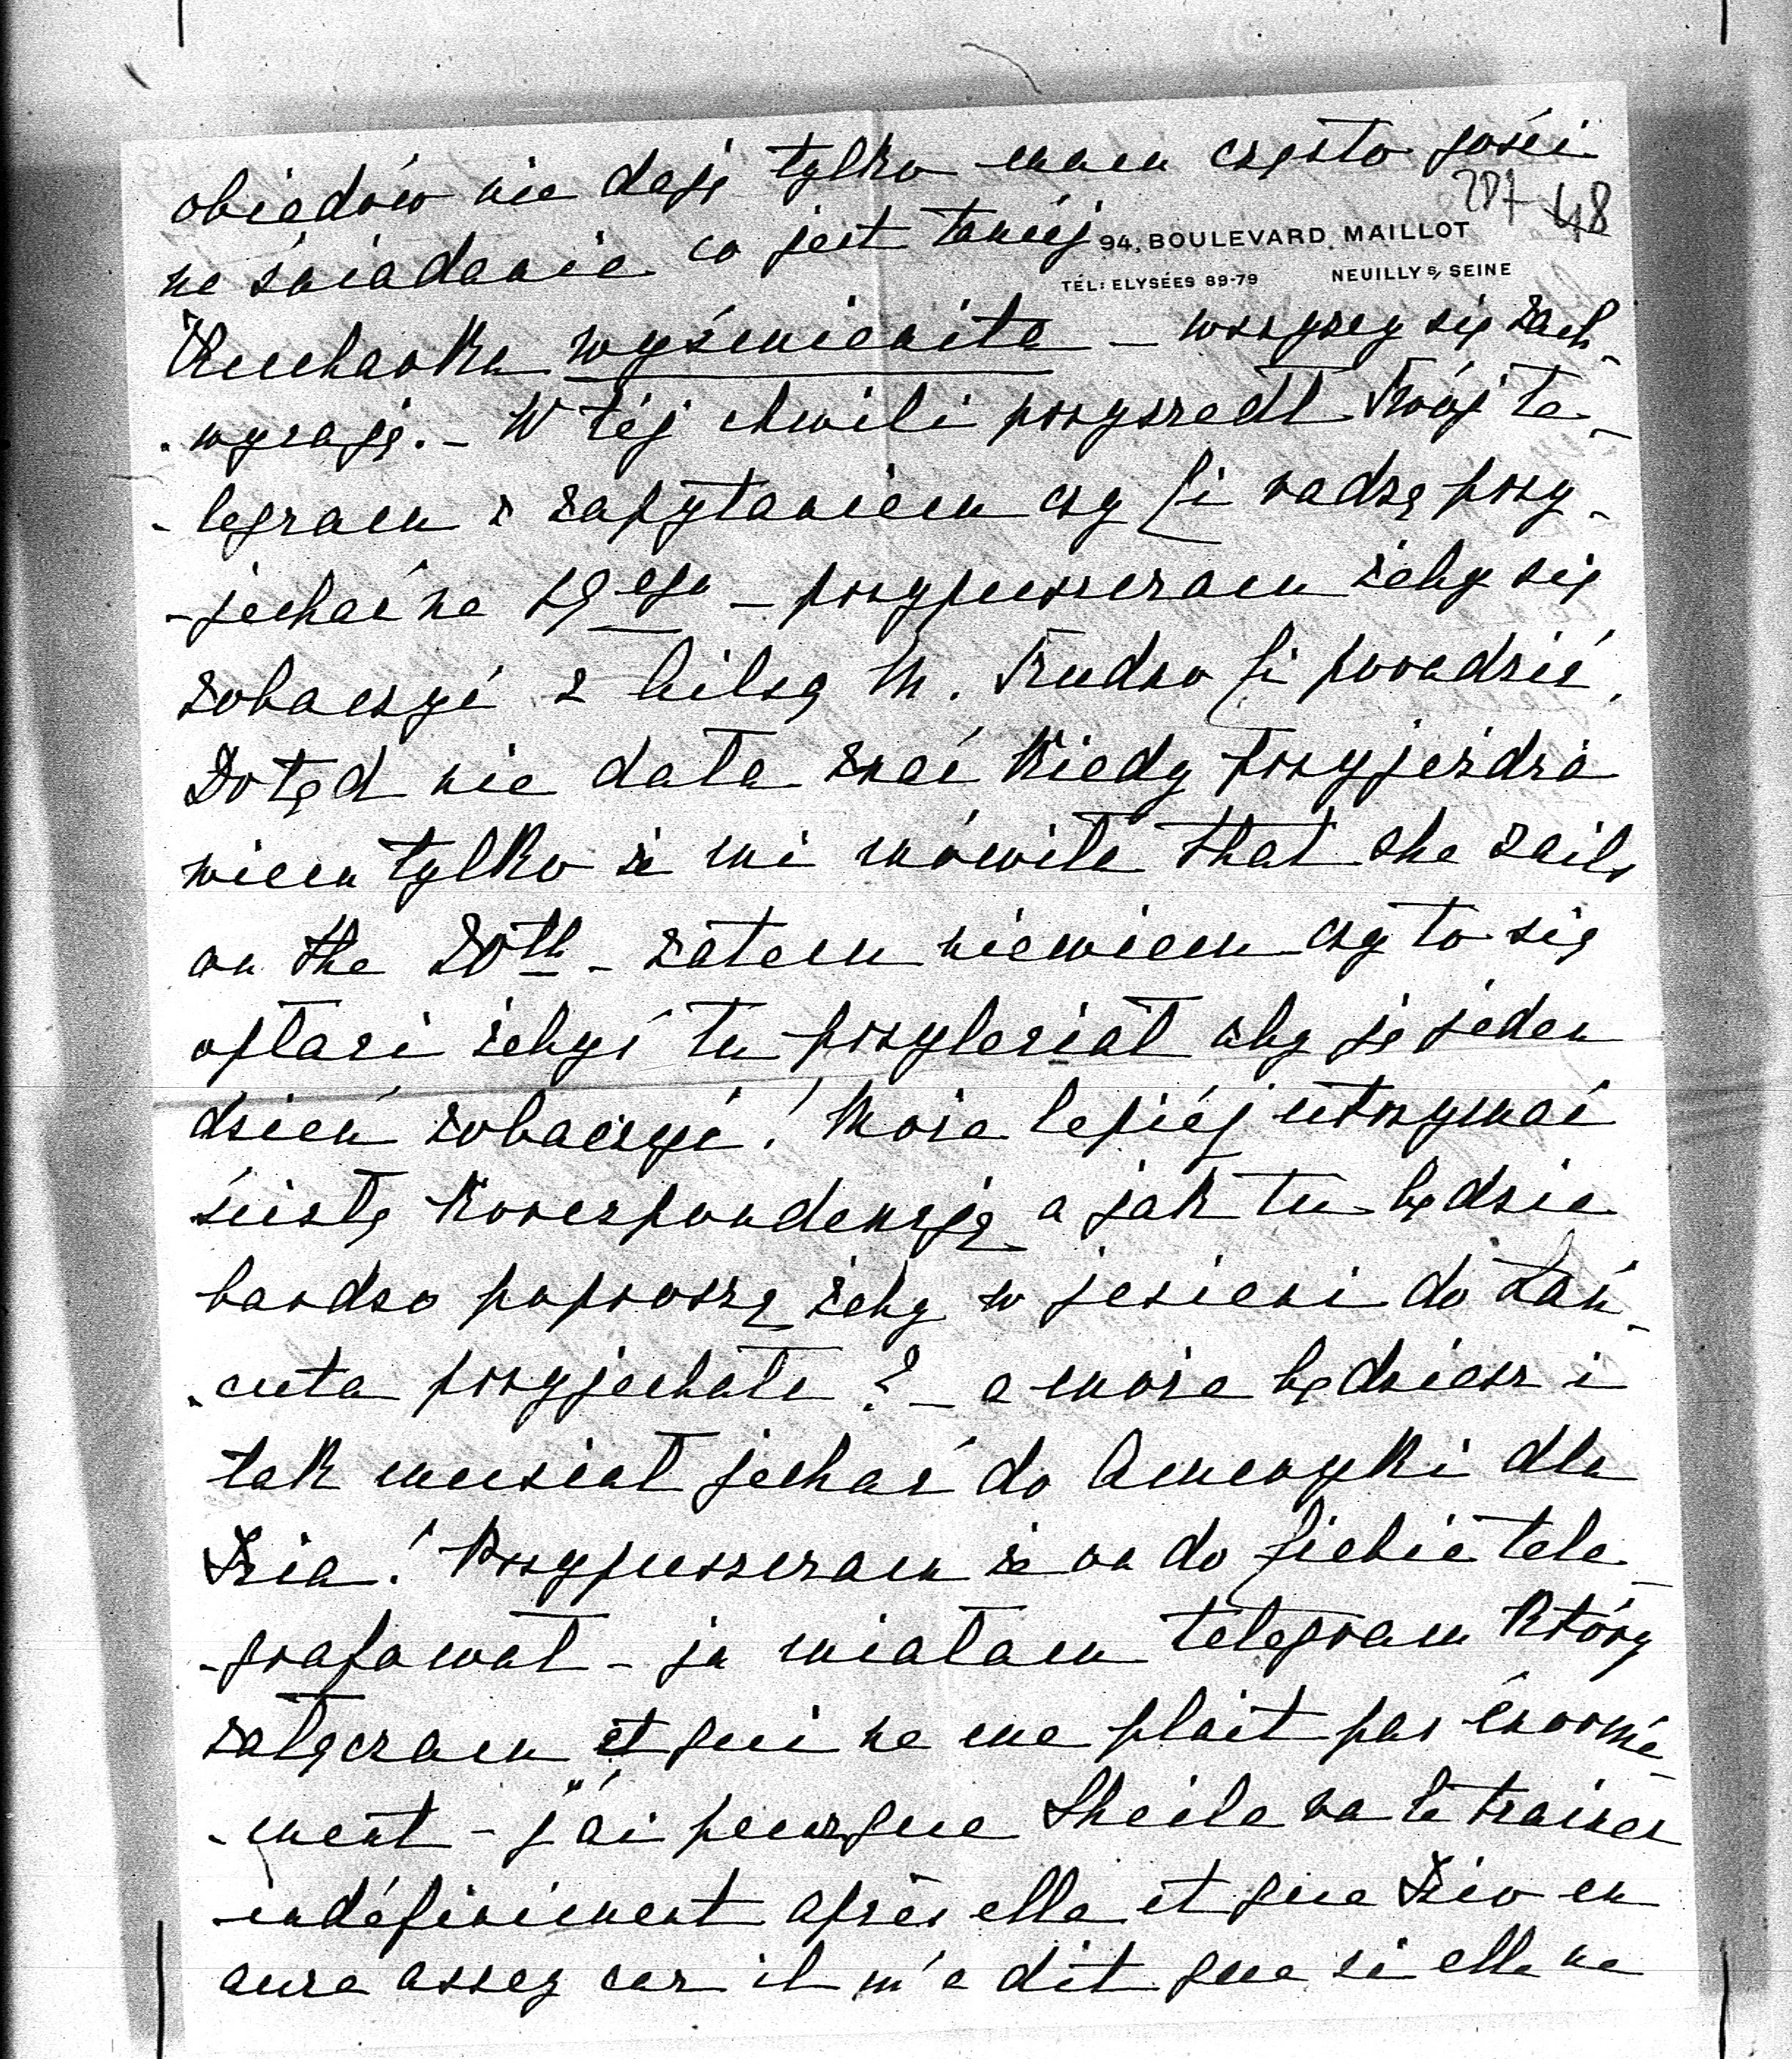 obiadów nie daję tylko mam często gości
287 48
na śniadanie co jest taniéj
94, BOULEVARD MAILLOT
TÉL: ELYSÉES 89-79 NEUILLY S/ SEINE
Kucharka wyśmienita – wszyscy się zach-
-wycają. – W téj chwili przyszedł Twój te-
-legram z zapytaniem czy Ci radzę przy-
-jechać na 19ego – przypuszczam żeby się
zobaczyć z M. Trudno Ci poradzić,
Dotąd nie dała znać kiedy przyjeżdża
wiem tylko że mi mówiła that she sails
on the 20th – zatem niewiem czy to się
opłaci żebyś tu przyleciał aby ją jeden
dzień zobaczyć! Może lepiéj utrzymać
ścisłą korespondencję a jak tu będzie
bardzo poproszę żeby w jesieni do Łań-
-cuta przyjechała? – a może będziesz i
tak musiał jechać do Ameryki dla
Przypuszczam że on do Ciebie tele-
-grafował – ja miałam telegram który
załączam et qui ne me plait pas énormé-
-ment – j'ai peur que Sheila va le trainer
indéfiniement après elle et que en
aura assez car il m'a dit que si elle ne